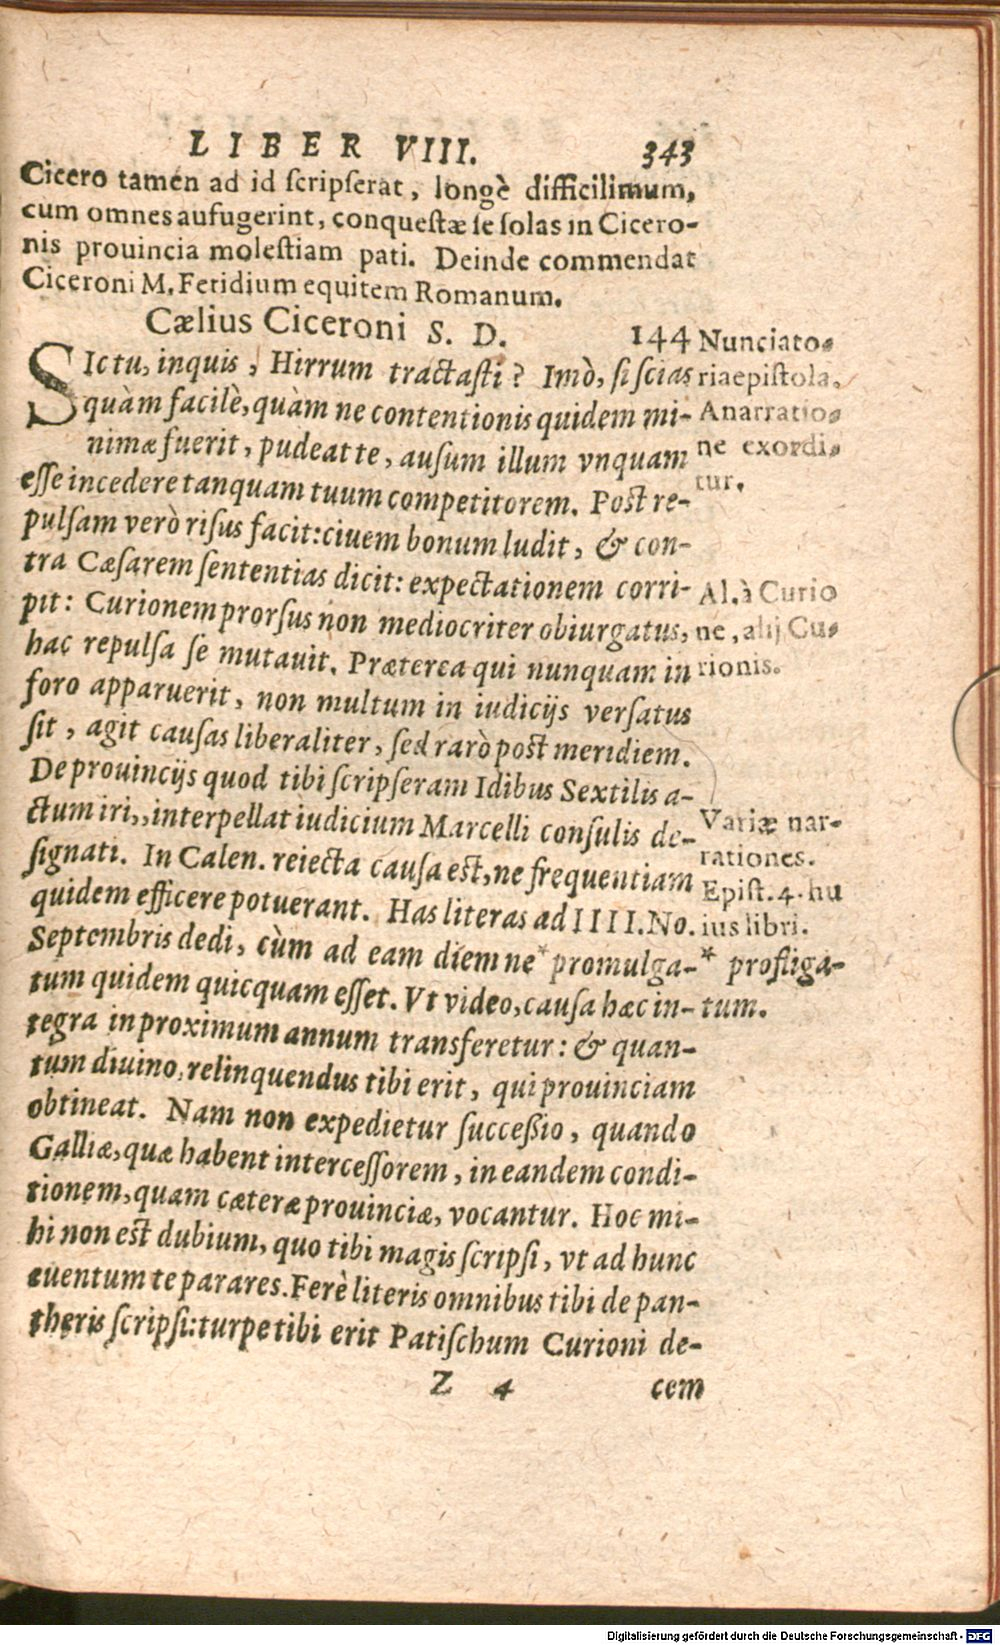 LIBER VIII. 343
Cicero tamen ad id ſcripſerat, longè difficilimum,
cum omnes aufugerint, conqueſtæ ſe ſolas in Cicero-
nis prouincia moleſtiam pati. Deinde commendat
Ciceroni M. Feridium equitem Romanum.
Cælius Ciceroni S. D. 144
SIc tu, inquis, Hirrum tractaſti? Imò, ſi ſcias
quàm facilè, quàm ne contentionis quidem mi-
nimæ fuerit, pudeat te, auſum illum vnquam
eſſe incedere tanquam tuum competitorem. Poſt re-
pulſam verò riſus facit: ciuem bonum ludit, & con-
tra Cæſarem ſententias dicit: expectationem corri-
pit: Curionem prorſus non mediocriter obiurgatus,
hac repulſa ſe mutauit. Præterea qui nunquam in
foro apparuerit, non multum in iudicijs verſatus
ſit, agit cauſas liberaliter, ſed rarò poſt meridiem.
De prouincijs quod tibi ſcripſeram Idibus Sextilis a-
ctum iri,, interpellat iudicium Marcelli conſulis de-
ſignati. In Calen. reiecta cauſa eſt, ne frequentiam
quidem efficere potuerant. Has literas ad IIII. No.
Septembris dedi, cùm ad eam diem ne * promulga-
tum quidem quicquam eſſet. Vt video, cauſa hæc in-
tegra in proximum annum transferetur: & quan-
tum diuino, relinquendus tibi erit, qui prouinciam
obtineat. Nam non expedietur ſucceßio, quando
Galliæ, quæ habent interceſſorem, in eandem condi-
tionem, quam cæteræ prouinciæ, vocantur. Hoc mi-
hi non eſt dubium, quo tibi magis ſcripſi, vt ad hunc
euentum te parares. Ferè literis omnibus tibi de pan-
theris ſcripſi: turpe tibi erit Patiſchum Curioni de-
Z 4 cem
Nunciato-
ria epiſtola.
A narratio-
ne exordi-
tur.
Al. à Curio
ne, alij Cu-
rionis.
Variæ nar-
rationes.
Epiſt. 4. hu
ius libri.
* profliga-
tum.
Digitalisierung gefördert durch die Deutsche Forschungsgemeinschaft - DFG